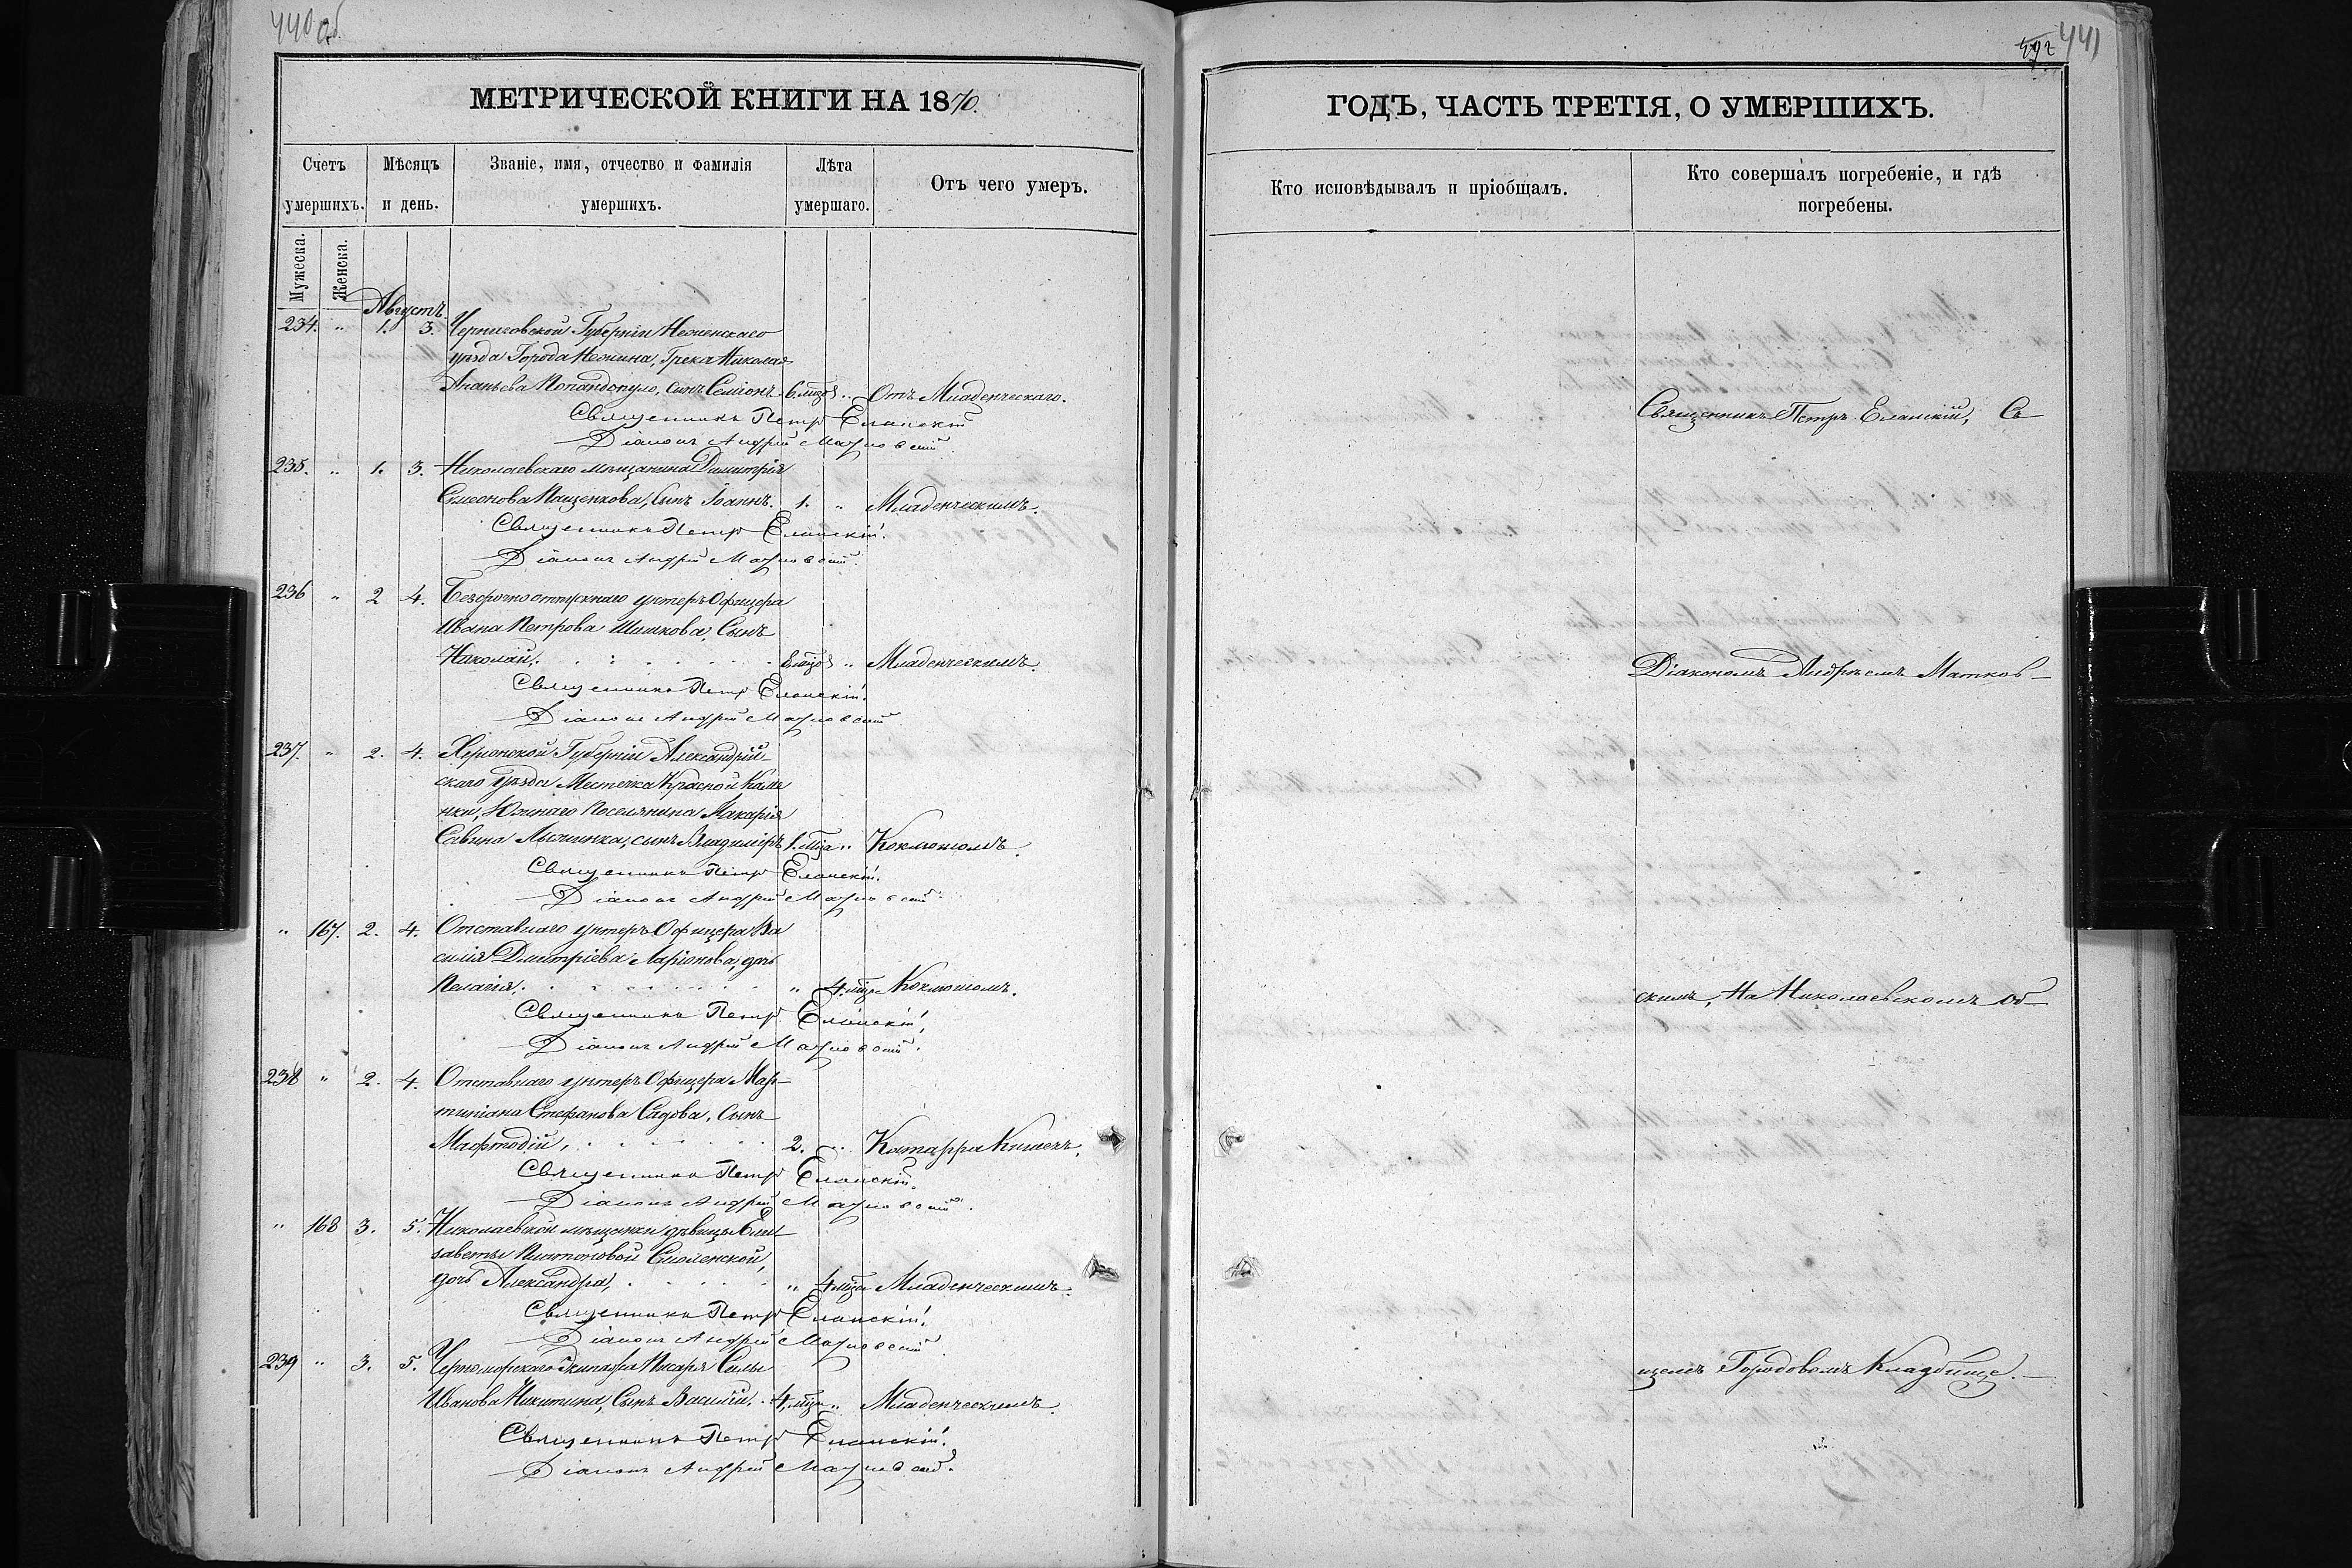 440 об.
МЕТРИЧЕСКОЙ КНИГИ НА 1870.
Счетъ умершихъ.
Мѣсяцъ и день.
Званіе, имя, отчество и фамилія умершихъ.
Лѣта умершаго.
Отъ чего умеръ.
Мужеска.
Женска.
Августъ.
234. " 1. 3. Черниговской Губерніи Неженскаго
уѣзда Города Нежина, Грека Николая
Ананьева Попандопуло, сынъ Семіонъ 6. мцовъ " Отъ Младенческаго.
Священникъ Петръ Еланскій
Діаконъ Андрей Матковскій
235. " 1. 3. Николаевскаго мѣщанина Димитрія
Симеонова Пащенкова, Сынъ Іоаннъ. 1. " Младенческимъ.
Священникъ Петръ Еланскій.
Діаконъ Андрей Матковскій.
236 " 2 4. Безсрочноотпускнаго унтеръ Офицера
Ивана Петрова Шашкова, Сынъ
Николай. 8 мцовъ " Младенческимъ.
Священникъ Петръ Еланскій.
Діаконъ Андрей Матковскій
237. " 2. 4. Херсонской Губерніи Александрій-
скаго уѣзда Местечка Красной Каме
нки, Южнаго Поселянина Макарія
Савина сынъ Владиміръ 1. мца " Коклюшомъ.
Священникъ Петръ Еланскій.
Діаконъ Андрей Матковскій
" 167. 2. 4. Отставнаго унтеръ Офицера Ва
силія Дмитріева Ларіонова, дочь
Пелагія. " 4. мца Коклюшомъ.
Священникъ Петръ Еланскій,
Діаконъ Андрей Матковскій.
238 " 2. 4. Отставнаго унтеръ Офицера Мар-
тиніана Стефанова Садова, Сынъ
Мафтодій, 2. " Катарра Кишекъ.
Священникъ Петръ Еланскій.
Діаконъ Андрей Матковскій.
" 168 3. 5. Николаевской мѣщанки дѣвицы Ели
заветы Смоленской,
дочь Александра, " 4 мца Младенческимъ.
Священникъ Петръ Еланскій.
Діаконъ Андрей Матковскій.
239 " 3. 5. Черноморскаго Экипажа Писаря Силы
Иванова Никитина, Сынъ Василій. 4. мца " Младенческимъ.
Священникъ Петръ Еланскій.
Діаконъ Андрей Матковскій.
441
ГОДЪ, ЧАСТЬ ТРЕТІЯ, О УМЕРШИХЪ.
Кто исповѣдывалъ и пріобщалъ.
Кто совершалъ погребеніе, и гдѣ
погребены.
Священникъ Петръ Еланскій, Съ
Діакономъ Андреемъ Матков-
скимъ, На Николаевскомъ об-
щемъ Городовомъ Кладбище.